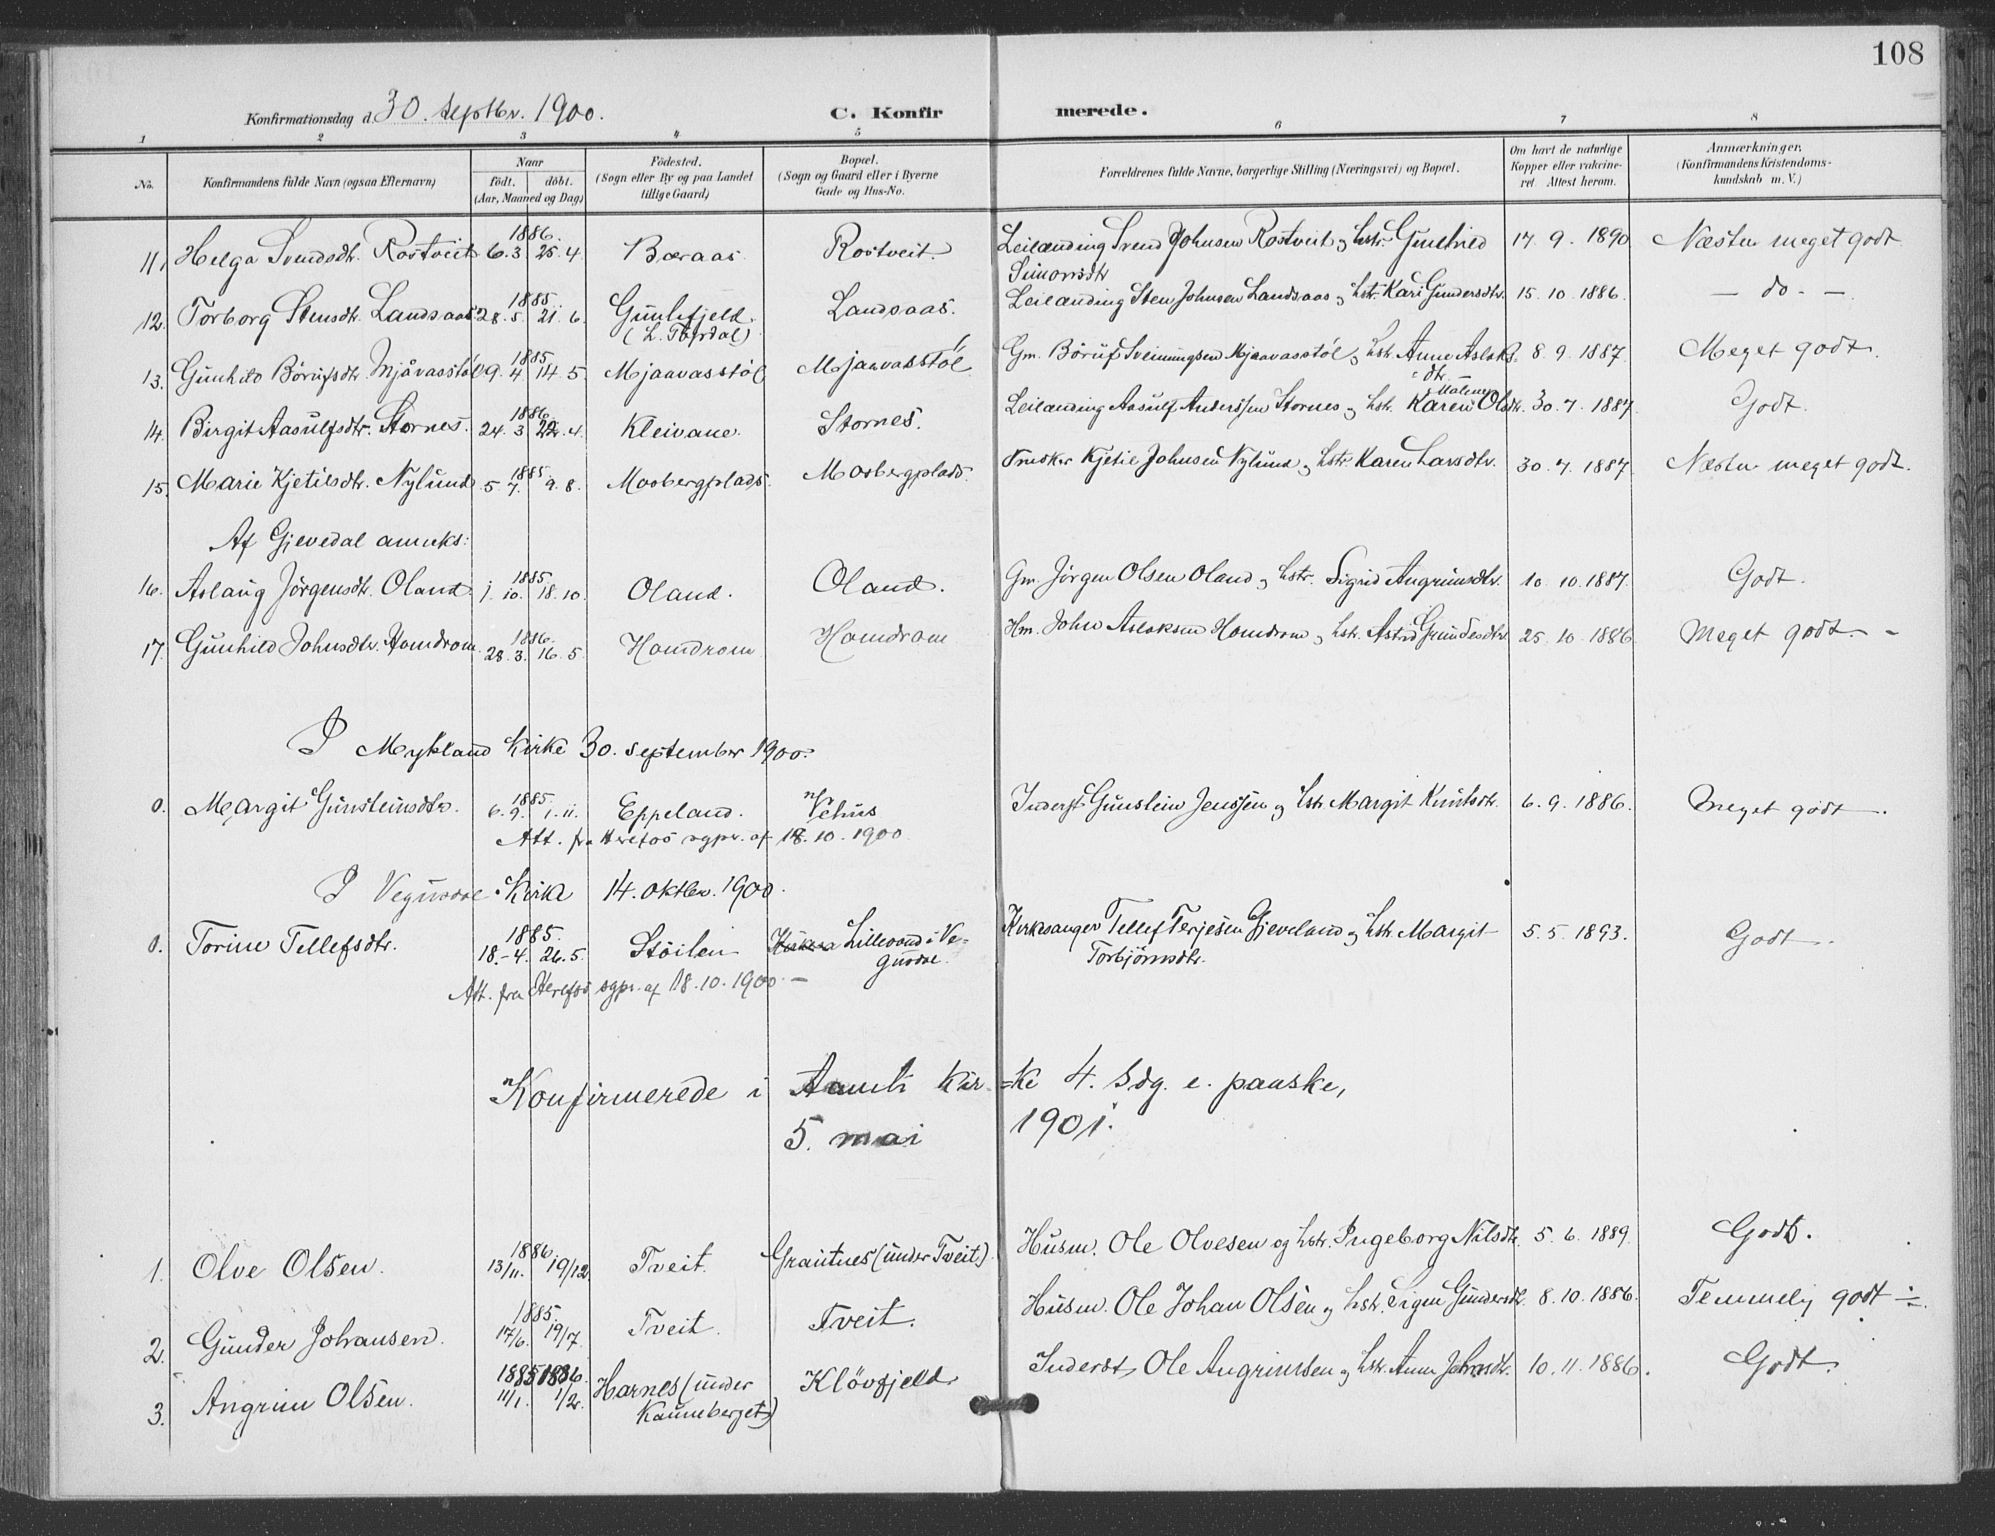 108
Konfirmationsdag d. 30. septbr. 1900. C. Konfirmerede.
1 2 3 4 5 6 7 8
No. Konfirmandens fulde Navn (ogsaa Efternavn) Naar födt. döbt. (Aar, Maaned og Dag) Födested. (Sogn eller By og paa Landet tillige Gaard) Bopæl. (Sogn og Gaard eller i Byerne Gade og Hus-No. Forældrenes fulde Navne, borgerlige Stilling (Næringsvei) og Bopæl. Om havt de naturlige Kopper eller vakcineret. Attest herom. Anmærkninger. (Konfirmandens Kristendomskundskab m. V.)
11. Helga Svendsdtr. Rostveit 1886. 6.3. 25.4 Bæraas Rostveit. Leilænding Svend Johnsen Rostveit og hstr. Gunhild Simonsdtr 17. 9. 1890 Næsten meget godt
12. Torborg Stensdtr. Landsaas 1885 28.5. 21.6. Gunlefjeld (L. Tovdal) Landsaas. Leilænding Sten Johnsen Landsaas og hstr. Kari Gundersdtr. 15. 10. 1886. — do. —
13. Gunhild Börufsdtr. Mjåvasstöl 1885 9.4 14.5. Mjaavasstöl Mjaavasstöl Gm. Böruf Sveinungsen Mjaavasstöl og hstr. Anne Aslaksdtr. 8. 9. 1887. Meget godt.
14. Birgit Aasulfsdtr. Stornes. 1886 24.3 22.4. Kleivane. Stornes. Leilænding Aasulf Anderssen Stornes og hstr. Karen Malene Olsdtr. 30. 7. 1887. Godt.
15. Marie Kjetilsdtr. Nylund 1885 5.7. 9.8. Mosbergplads. Mosbergplads. Kjetil Johnsen Nylund og hstr Karen Larsdtr. 30. 7. 1887. Næsten meget godt.
Af Gjevedal anneks:
16. Aslaug Jörgensdtr. Oland 1885. 1.10. 18.10. Oland. Oland. Gm. Jörgen Olsen Oland og hstr. Sigrid Angrimsdtr. 10. 10. 1887. Godt.
17. Gunhild Johnsdtr. Homdrom. 1886. 28.3. 16.5. Homdrom Homdrom Hm. John Aslaksen Homdrom og hstr. Astrid Gundersdtr. 25. 10. 1886 Meget godt. -
I Mykland Kirke 30. september 1900.
0. Margit Gunsteinsdtr. 1885. 6.9. 1.11. Eppeland. Vehus Inderst Gunstein Jenssen og hstr Margit Knutsdtr. 6. 9. 1886. Meget godt.
Att. fra Herefos sgpr. af 18. 10. 1900.
I Vegusdal Kirke 14. oktbr. 1900.
0. Torine Tellefsdtr. 1885 18.-4. 26.5. Stöilen Lillevand i Vegusdal. Kirkesanger Tellef Terjesen Gjeveland og hstr Margit Torbjörnsdtr. 5. 5. 1893. Godt.
Att. fra Herefos sgpr. af 18. 10. 1900 —
Konfirmerede i Aamli Kirke 4. Sdg. e. paaske,
5. mai 1901.
1. Olve Olsen. 1886 13/11. 19/12. Tveit. Grautnes (under Tveit). Husm. Ole Olvesen og hstr. Ingeborg Nilsdtr. 5. 6. 1889. Godt.
2. Gunder Johansen. 1885. 17/6. 19/7. Tveit. Tveit. Husm. Ole Johan Olsen og hstr. Sigen Gundersdtr. 8. 10. 1886. Temmelig godt ÷.
3. Angrim Olsen. 1885 11/1. 1886. 1/2. Harnes (under Kauneberget) Klövfjeld Inderst Ole Angrimsen og hstr. Anne Johnsdtr. 10. 11. 1886. Godt.